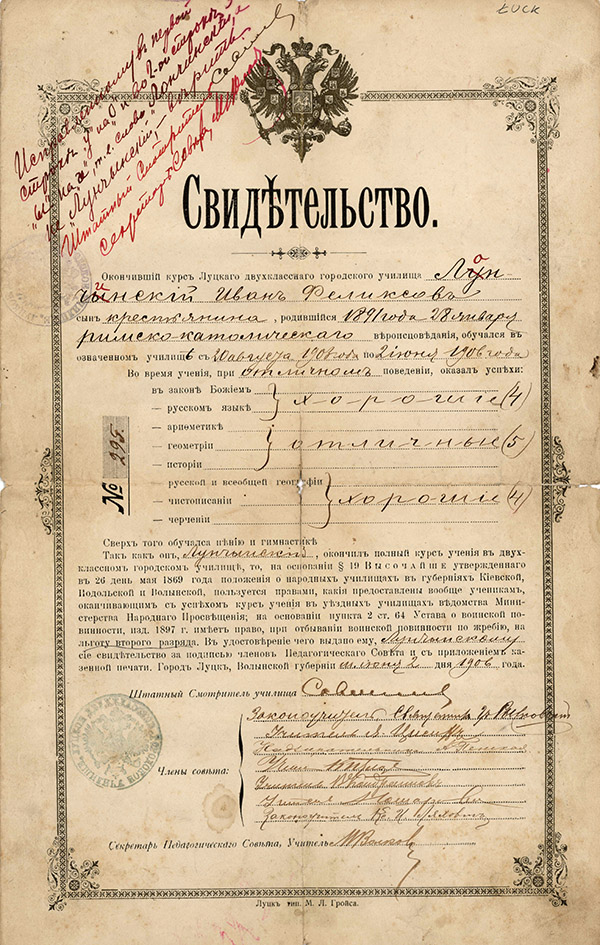 ŁUCK
Исправленному въ первой
строкѣ "у" на "о" и во 2-ой строкѣ
"ы" на "и", т.е. слово "Лончинскій", а
не "Лунчынскій", – вѣрить.
Штатный Смотритель
Секретарь Совѣта
Свидѣтельство.
Окончившій курсъ Луцкаго двухкласснаго городского училища Лун-
чынскій Иванъ Феликсовъ
сынъ крестьянина, родившійся 1891 года 28 января
римско-католическаго вѣроисповѣданія, обучался въ
означенномъ училищѣ съ 20 августа 1904 года по 2 іюня 1906 года
Во время ученія, при отличномъ поведеніи, оказалъ успѣхи:
въ законѣ Божіемъ
— русскомъ языкѣ хорошіе (4)
— ариѳметикѣ
— геометріи отличные (5)
— исторіи
— русской и всеобщей географіи
— чистописаніи хорошіе (4)
— черченіи
№ 295.
Сверхъ того обучался пѣнію и гимнастикѣ
Такъ какъ онъ, Лунчынскій, окончилъ полный курсъ ученія въ двух-
классномъ городскомъ училищѣ, то, на основаніи § 19 Высочайше утвержденнаго
въ 26 день мая 1869 года положенія о народныхъ училищахъ въ губерніяхъ Кіевской,
Подольской и Волынской, пользуется правами, какія предоставлены вообще ученикамъ,
оканчивающимъ съ успѣхомъ курсъ ученія въ уѣздныхъ училищахъ вѣдомства Мини-
стерства Народнаго Просвѣщенія; на основаніи пункта 2 ст. 64 Устава о воинской по-
винности, изд. 1897 г. имѣетъ право, при отбываніи воинской повинности по жребію, на
льготу второго разряда. Въ удостовѣреніе чего выдано ему, Лунчынскому
сіе свидѣтельство за подписью членовъ Педагогическаго Совѣта и съ приложеніемъ
казенной печати. Городъ Луцкъ, Волынской губерніи іюня 2 дня 1906 года.
Штатный Смотритель училища
Члены совѣта:
Законоучитель
Учитель
Учитель
Законоучитель
Секретарь Педагогическаго Совѣта, Учитель
Луцкъ тип. М. Л. Гройса.